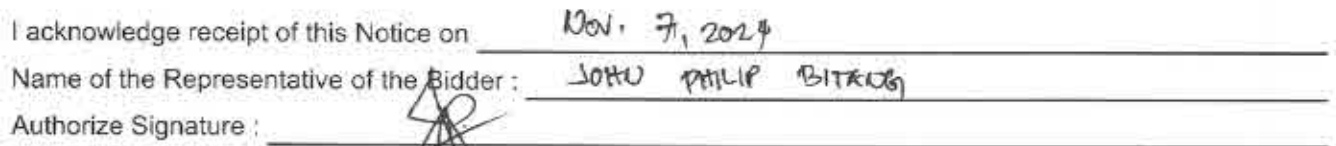 I acknowledge receipt of this Notice on Nov. 7, 2024
Name of the Representative of the Bidder : JOHN PHILIP
Authorize Signature :